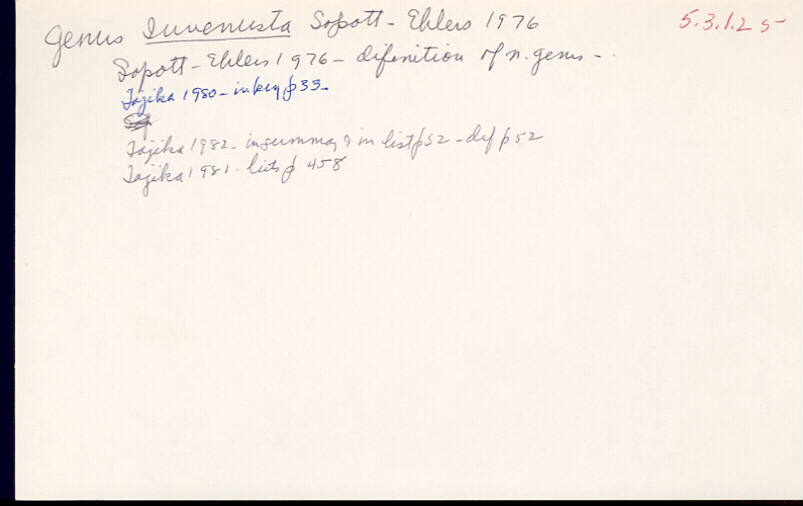 Genus Iuvenusta Sopott-Ehlers 1976
5.3.1.2 5-
Sopott-Ehlers 1976 - definition of n. genus -.
Tajika 1980 - in key p 33.
Tajika 1982 - in summary & in list p 52 - def p 52
Tajika 1981 - lists p 458